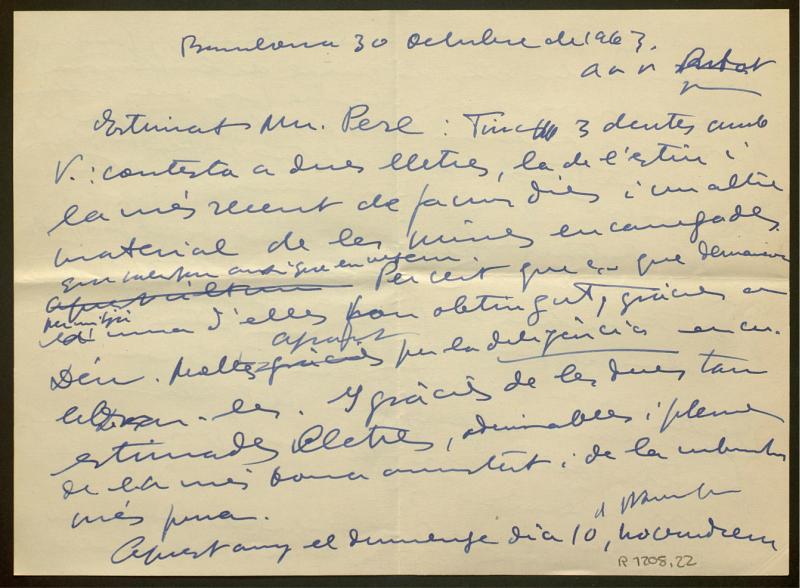 Barcelona 30 octubre de 1963.
Estimat Mn. Pere: Tinc 3 deutes amb
V.: contesta a dues lletres, la de l'estiu i
la més recent de fa uns dies i un altre
material de les mines encarregades.
Percert que que demanàvem
una d'elles han obtingut, gràcies a
Déu. Moltes gràcies per la diligència en
les. I gràcies de les dues tan
estimades lletres, admirables i plenes
de la més bona amistat i de la
més pura.
Aquest any el diumenge dia 10, novembre
R 1208,22